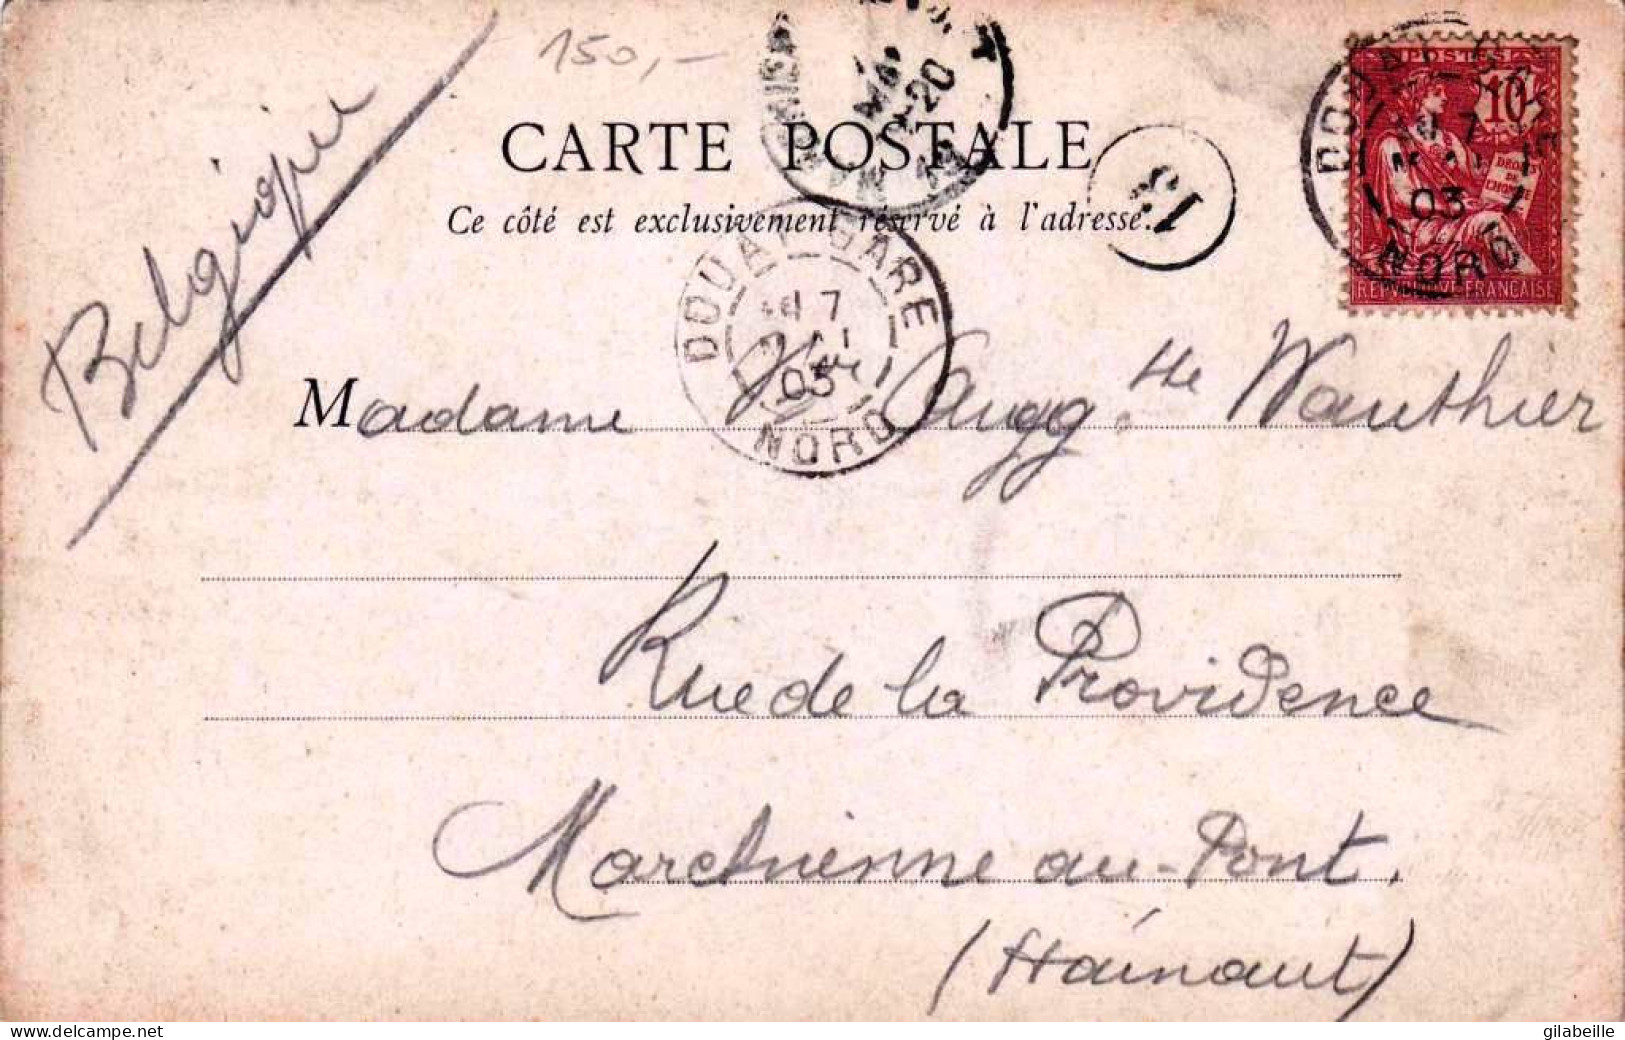 150,-
CARTE POSTALE
Ce côté est exclusivement réservé à l'adresse.
Belgique
POSTES
10
DROITS
DE
L'HOMME
REPUBLIQUE FRANÇAISE
DOUAI GARE
7
MAI
03
NORD
DOUAI GARE
7
MAI
03
NORD
20
15
Madame Vve Augg.tte Wauthier
Rue de la Providence
Marchienne au-Pont.
(Hainaut)
www.delcampe.net
gilabeille